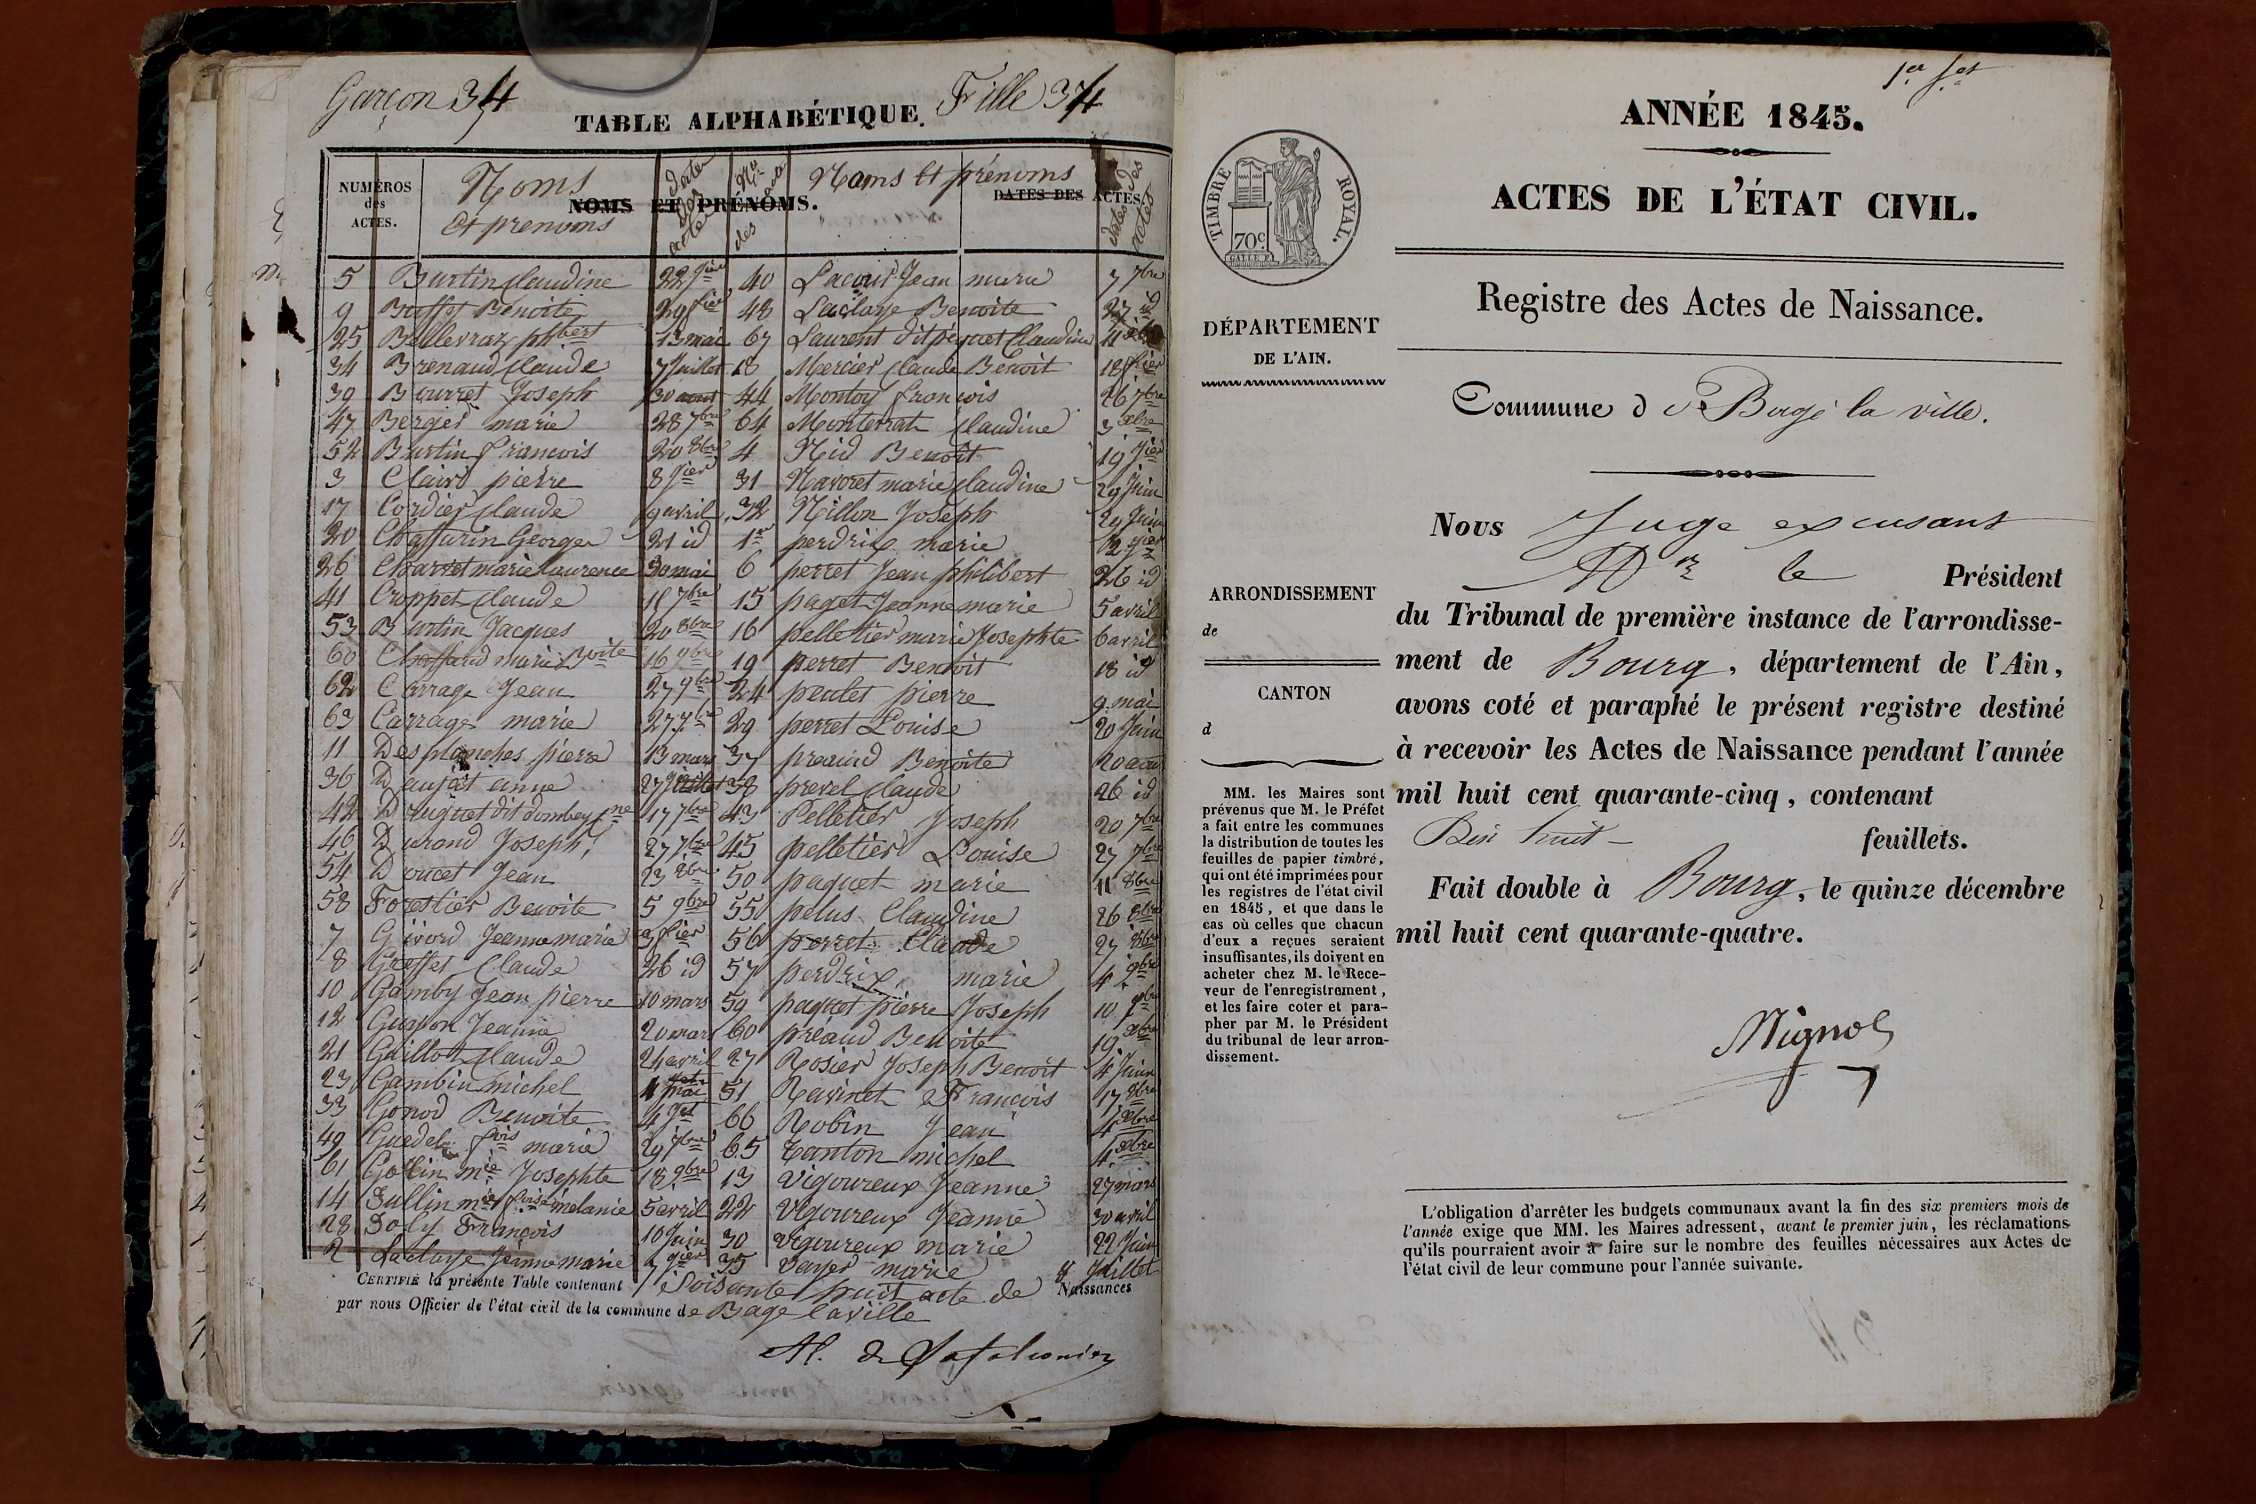 Garçon 34 Fille 34
TABLE ALPHABÉTIQUE.
NUMÉROS des ACTES. Noms Et prenoms NOMS ET PRÉNOMS. Dates des actes Nos des actes Noms Et prénoms DATES DES ACTES. Dates des actes
5 Burtin Claudine 22 Jier 40 Lacour Jean marie 7 7bre
9 Buffet Benoite 29 fier 48 Laclaye Benoite 27 id
25 Bellevrat phbert 13 mai 67 Laurent dit péquet Claudine
34 Brenaud Claude 7 Juillet 18 Mercier Claude Benoit 18
39 Bourret Joseph 30 aout 44 Montoy francois 26 7bre
47 Berger marie 28 7bre 64 Monterrat Claudine 3 xbre
52 Burtin francois 20 8bre 4 Nid Benoît 19 Jier
3 Claire pierre 8 Jier 31 Navoret marie Claudine 29 Juin
17 Cordier Claude 9 avril 32 Nillon Joseph 29 Juin
20 Chaffurin George 21 id 1er perdrix marie 2 Jier
26 Charret marie Laurence 30 mai 6 perret Jean philibert 26 id
41 Croppet Claude 11 7bre 15 paget Jeanne marie 5 avril
53 Burtin Jacques 20 8bre 16 pelletier marie Josephte 6 avril
60 Chaffard marie 16 9bre 19 perret Benoît 18 id
62 Carrage Jean 27 9bre 24 peulet pierre 9 mai
63 Carrage marie 27 29 perret Louise 20 Juin
11 Desplanches pierre 13 mars 37 preaud Benoite 20 aout
36 Daujat anne 27 Juillet 38 prevel Claude 26 id
42 Duquet dit dombey 17 7bre 43 Pelletier Joseph 20 7bre
46 Durand Joseph 27 7bre 45 pelletier Louise 27 7bre
54 Doucet Jean 23 8bre 50 paquet marie 11 8bre
58 Forestier Benoite 5 9bre 55 pelus Claudine 26 8bre
7 Givord Jeanne marie 3 fier 56 perret Claude 27 8bre
8 Greffet Claude 26 id 57 perdrix marie 4 9bre
10 Gamby Jean pierre 10 mars 59 paquet pierre Joseph 10 9bre
12 Guyon Jeanne 20 mars 60 préaud Benoite 19 xbre
21 Guillot Claude 24 avril 27 Rosier Joseph Benoît 4 Juin
23 Gambin michel 4 mai 51 Ravinet François 17 8bre
33 Gonod Benoite 4 Jet 66 Robin Jean 4 xbre
49 Guedel fois marie 29 7bre 65 Tanton michel 4 xbre
61 Gollin mie Josephte 18 9bre 13 Vigoureux Jeanne 27 mars
14 Jullin mie foise mélanie 5 avril 22 Vigoureux Jeanne 30 avril
28 Joly François 10 Juin 30 Vigoureux marie 22 Juin
2 Laclaye Jeanne marie 7 Jier 35 vayer marie 8 Juillet
CERTIFIÉ la présente Table contenant Soisante huit acte de Naissances
par nous Officier de l'état civil de la commune de Bage Laville
1er
ANNÉE 1845.
ACTES DE L'ÉTAT CIVIL.
TIMBRE ROYAL.
70c.
DÉPARTEMENT
DE L'AIN.
Registre des Actes de Naissance.
Commune de Bagé la ville.
Nous Juge excusant
Mr le Président
ARRONDISSEMENT
de
du Tribunal de première instance de l'arrondisse-
ment de Bourg, département de l'Ain,
CANTON
d
avons coté et paraphé le présent registre destiné
à recevoir les Actes de Naissance pendant l'année
mil huit cent quarante-cinq, contenant
Dix huit feuillets.
Fait double à Bourg, le quinze décembre
mil huit cent quarante-quatre.
MM. les Maires sont
prévenus que M. le Préfet
a fait entre les communes
la distribution de toutes les
feuilles de papier timbré,
qui ont été imprimées pour
les registres de l'état civil
en 1845, et que dans le
cas où celles que chacun
d'eux a reçues seraient
insuffisantes, ils doivent en
acheter chez M. le Rece-
veur de l'enregistrement,
et les faire coter et para-
pher par M. le Président
du tribunal de leur arron-
dissement.
Mignot
L'obligation d'arrêter les budgets communaux avant la fin des six premiers mois de
l'année exige que MM. les Maires adressent, avant le premier juin, les réclamations
qu'ils pourraient avoir à faire sur le nombre des feuilles nécessaires aux Actes de
l'état civil de leur commune pour l'année suivante.